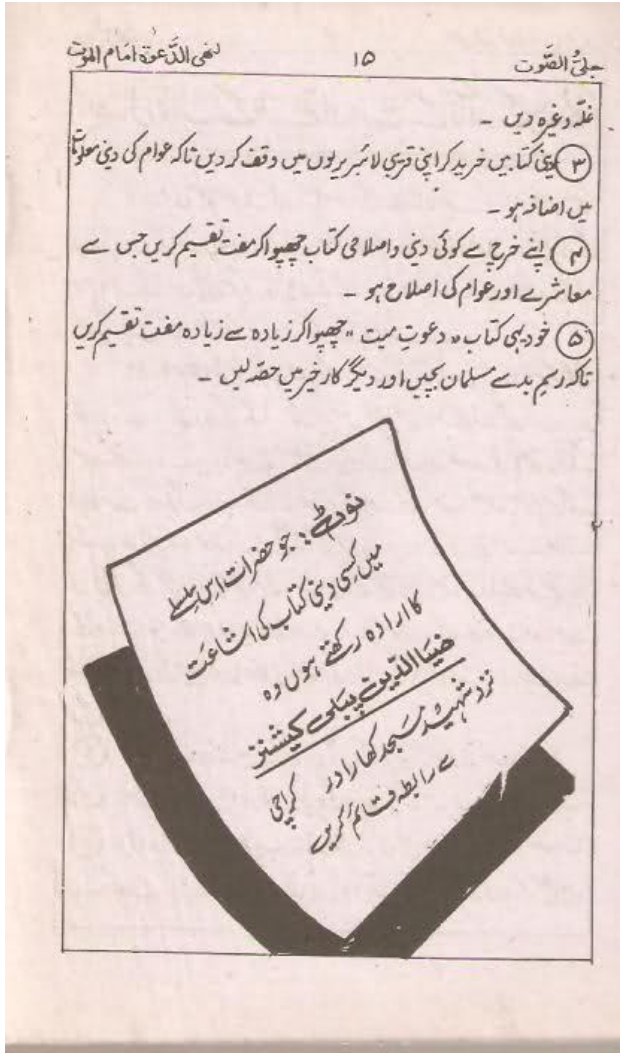 جلیُّ الصَّوت ۱۵ لنھی الدَّعوۃ امَام الموت
غلّہ وغیرہ دیں ۔
۳ دینی کتابیں خرید کر اپنی قریبی لائبریریوں میں وقف کر دیں تاکہ عوام کی دینی معلومات
میں اضافہ ہو ۔
۴ اپنے خرچ سے کوئی دینی واصلاحی کتاب چھپوا کر مفت تقسیم کریں جس سے
معاشرے اور عوام کی اصلاح ہو ۔
۵ خود یہی کتاب "دعوتِ میت" چھپوا کر زیادہ سے زیادہ مفت تقسیم کریں
تاکہ رسمِ بد سے مسلمان بچیں اور دیگر کارِ خیر میں حصّہ لیں ۔
نوٹ : جو حضرات اس سلسلے
میں کسی دینی کتاب کی اشاعت
کا ارادہ رکھتے ہوں وہ
ضیاالدّین پبلی کیشنز
نزد شہید مسجد کھارادر کراچی
سے رابطہ قائم کریں